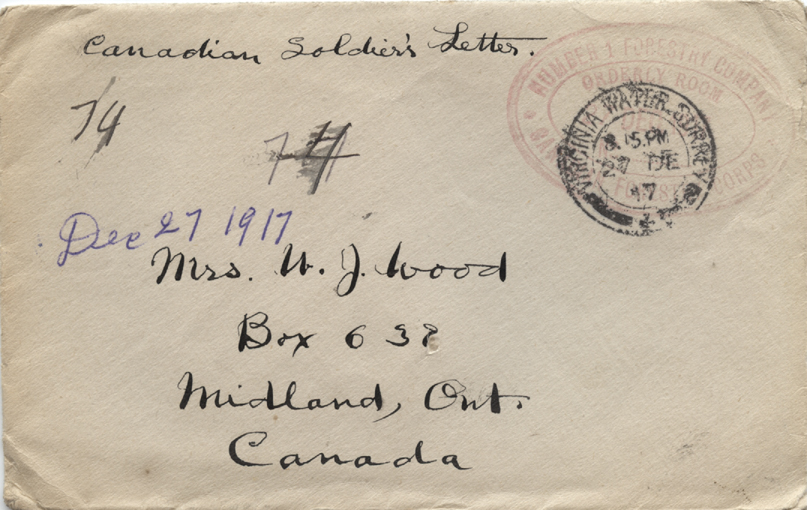 Canadian Soldier's Letter.
NUMBER 1 FORESTRY COMPANY
ORDERLY ROOM
DEC
CORPS
VIRGINIA WATER. SURREY
8.15.PM
27 DE
17
74
74
Dec 27 1917
Mrs. W. J. Wood
Box 638
Midland, Ont.
Canada